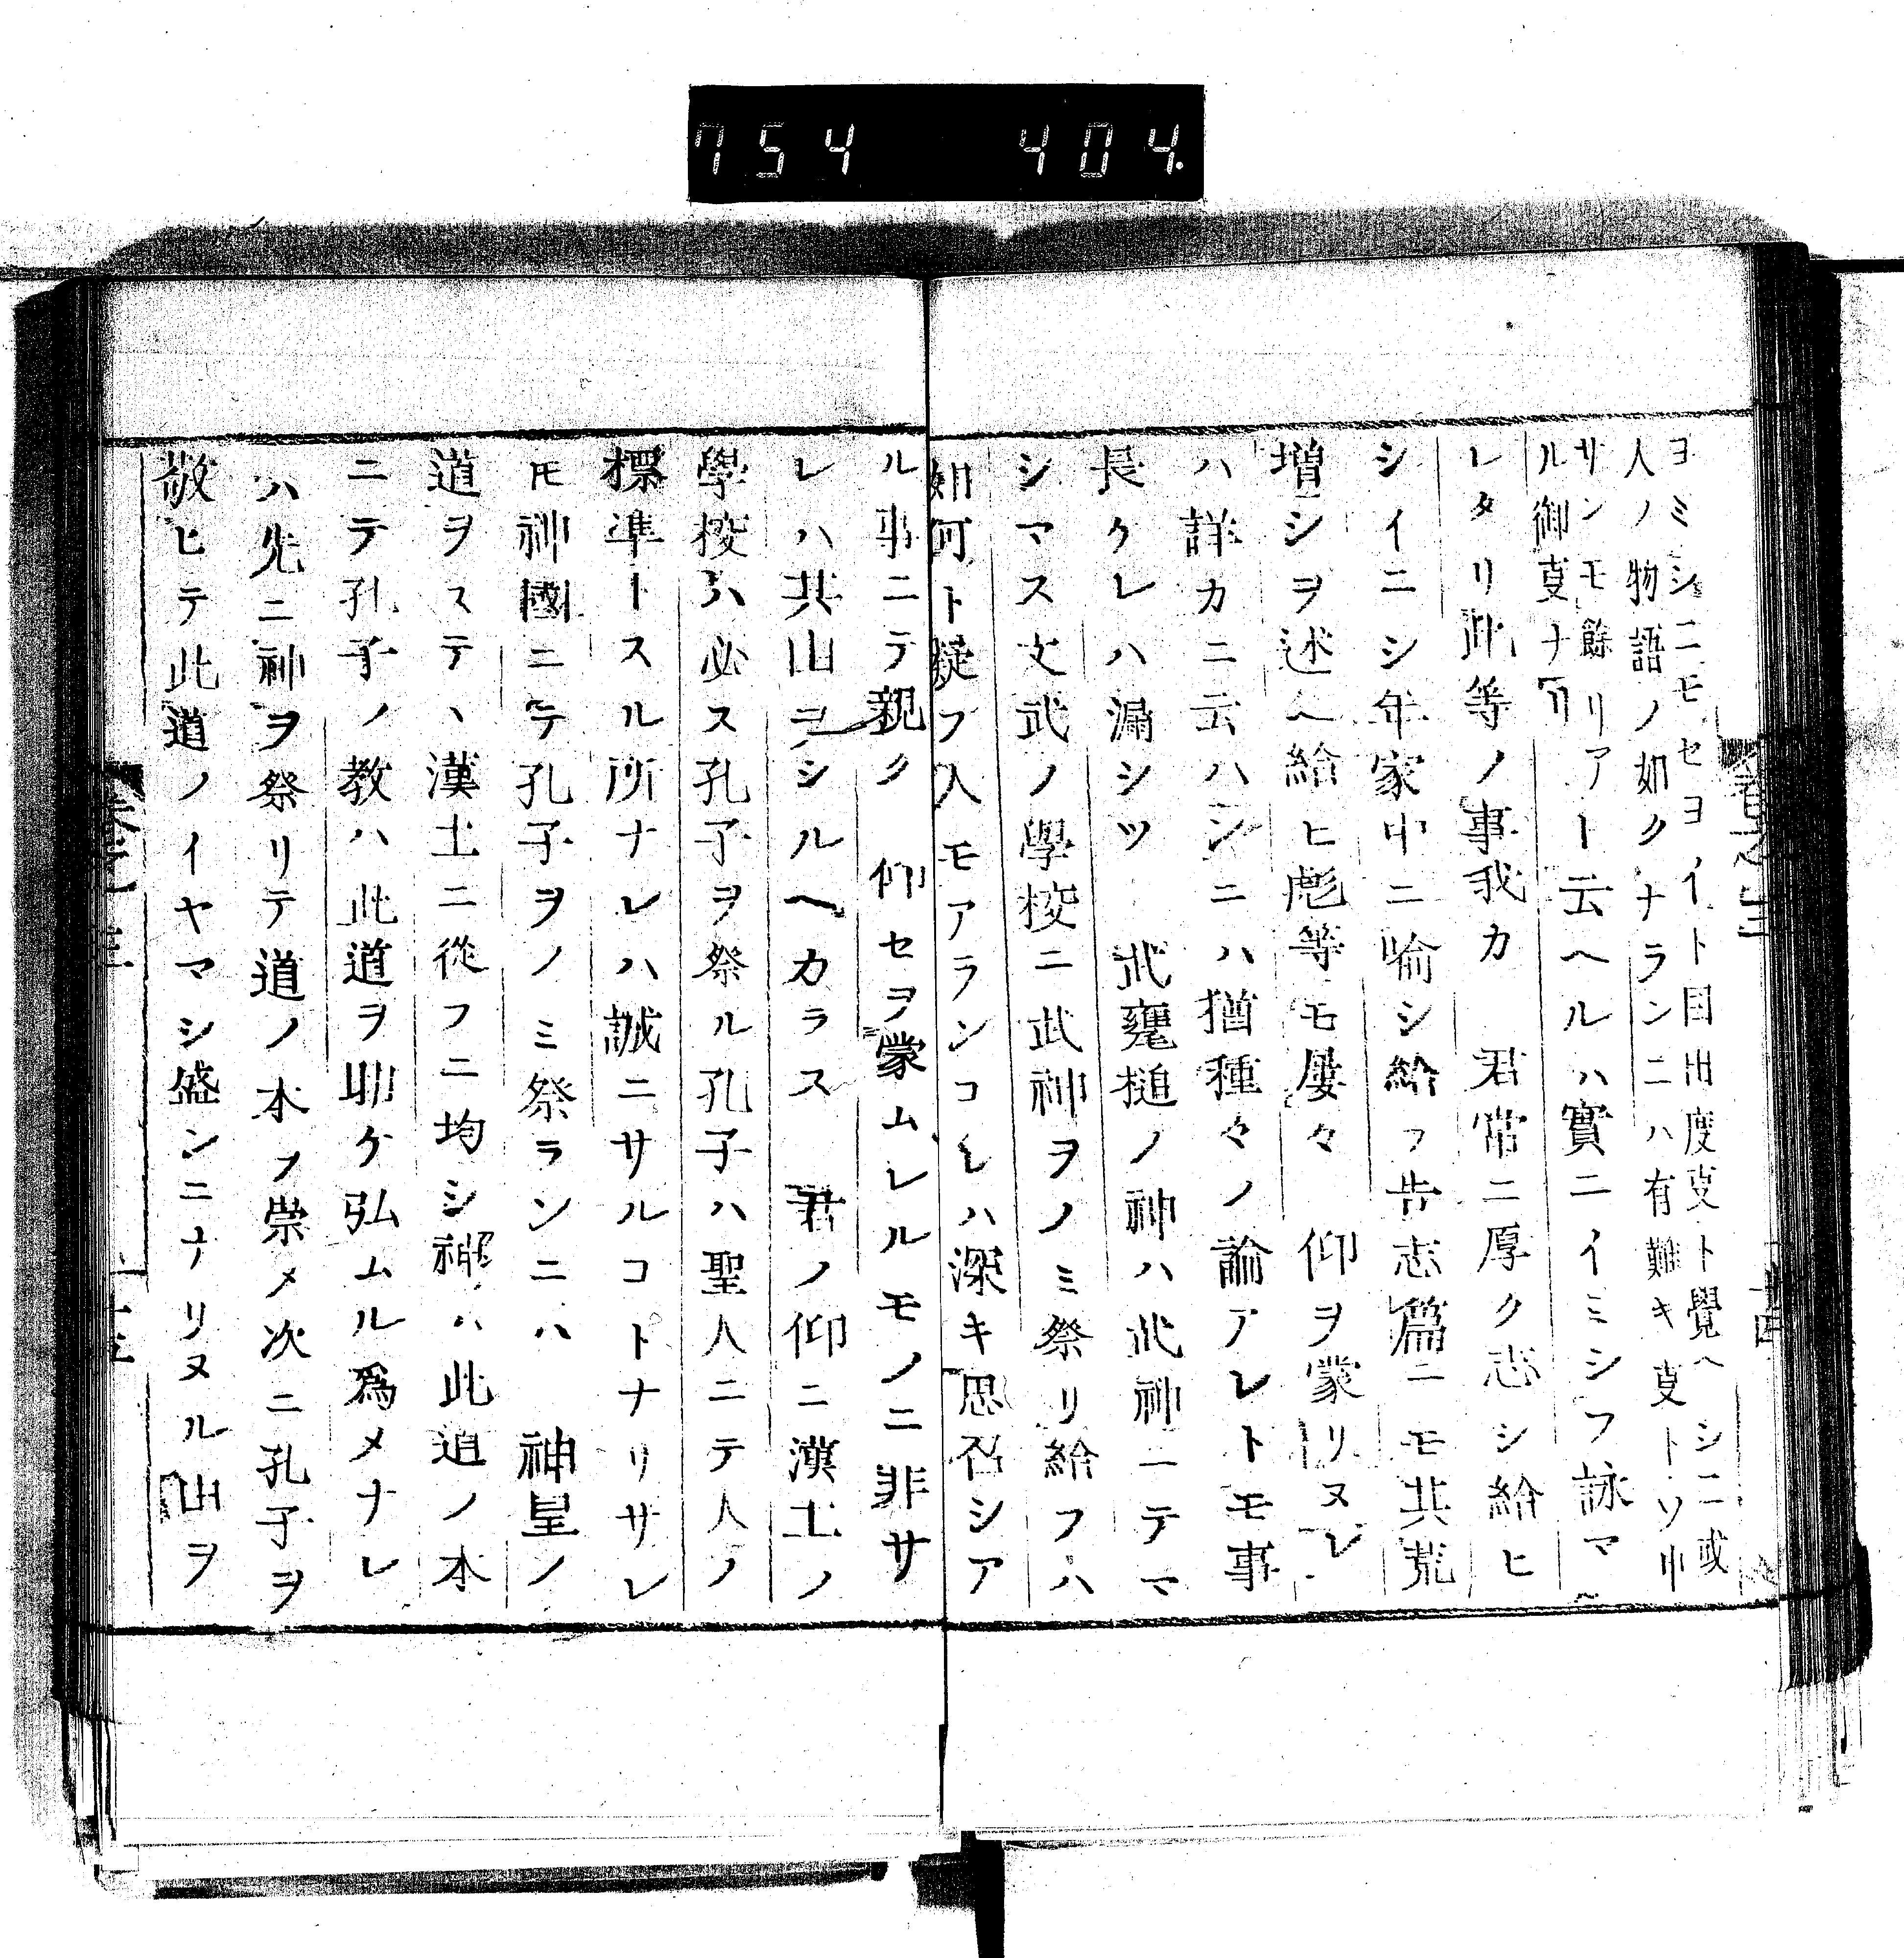 754 404.
ヨミシニモセヨイト目出度叓ト覺ヘシニ或
人ノ物語ノ如クナランニハ有難キ叓トソ申
サンモ餘リアト云ヘルハ實ニイミシフ詠マ
ル御叓ナリ
レタリ此等ノ事我カ 君常ニ厚ク志シ給ヒ
シイニシ年家中ニ喩シ給フ告志篇ニモ其荒
増シヲ述ヘ給ヒ彪等モ屢々 仰ヲ蒙リヌレ
ハ詳カニ云ハンニハ猶種々ノ論アレトモ事
長クレハ漏シツ 武甕槌ノ神ハ武神ニテマ
シマス文武ノ學校ニ武神ヲノミ祭リ給フハ
如何ト疑フ人モアランコレハ深キ思召シア
ル事ニテ親ク 仰セヲ蒙ムレルモノニ非サ
レハ其由ヲシルヘカラス 君ノ仰ニ漢土ノ
學校ハ必ス孔子ヲ祭ル孔子ハ聖人ニテ人ノ
標準トスル所ナレハ誠ニサルコトナリサレ
モ神國ニテ孔子ヲノミ祭ランニハ 神皇ノ
道ヲステヽ漢土ニ從フニ均シ神ハ此道ノ本
ニテ孔子ノ教ハ此道ヲ助ケ弘ムル爲メナレ
ハ先ニ神ヲ祭リテ道ノ本ヲ崇メ次ニ孔子ヲ
敬ヒテ此道ノイヤマシ盛ンニナリヌル由ヲ